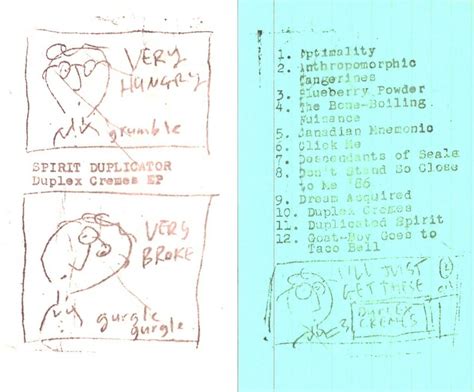 VERY
HUNGRY
grumble
SPIRIT DUPLICATOR
Duplex Cremes EP
VERY
BROKE
gurgle
gurgle
1. Optimality
2. Anthropomorphic
Tangerines
3. Blueberry Powder
4. The Bone-Boiling
Nuisance
5. Canadian Mnemonic
6. Click Me
7. Descendants of Seals
8. Don't Stand So Close
to Me '86
9. Dream Acquired
10. Duplex Cremes
11. Duplicated Spirit
12. Goat-Boy Goes to
Taco Bell
I'LL JUST
GET THESE
DUPLEX
CREMES